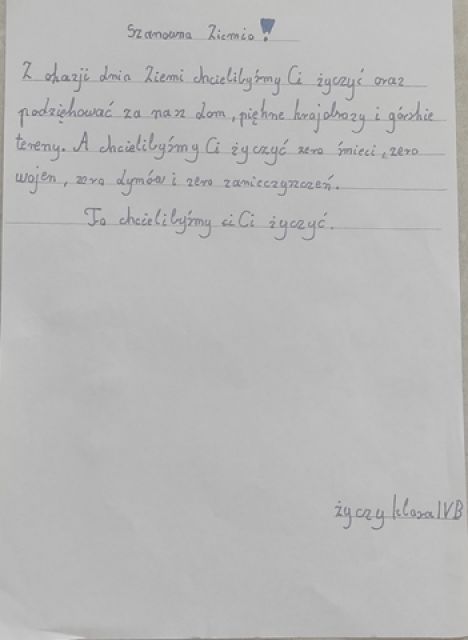 Szanowna Ziemio!
Z okazji dnia Ziemi chcielibyśmy Ci życzyć oraz
podziękować za nasz dom, piękne krajobrazy i górskie
tereny. A chcielibyśmy Ci życzyć zero śmieci, zero
wojen, zero dymów i zero zanieczyszczeń.
To chcielibyśmy ci Ci życzyć.
życzy klasa IVB